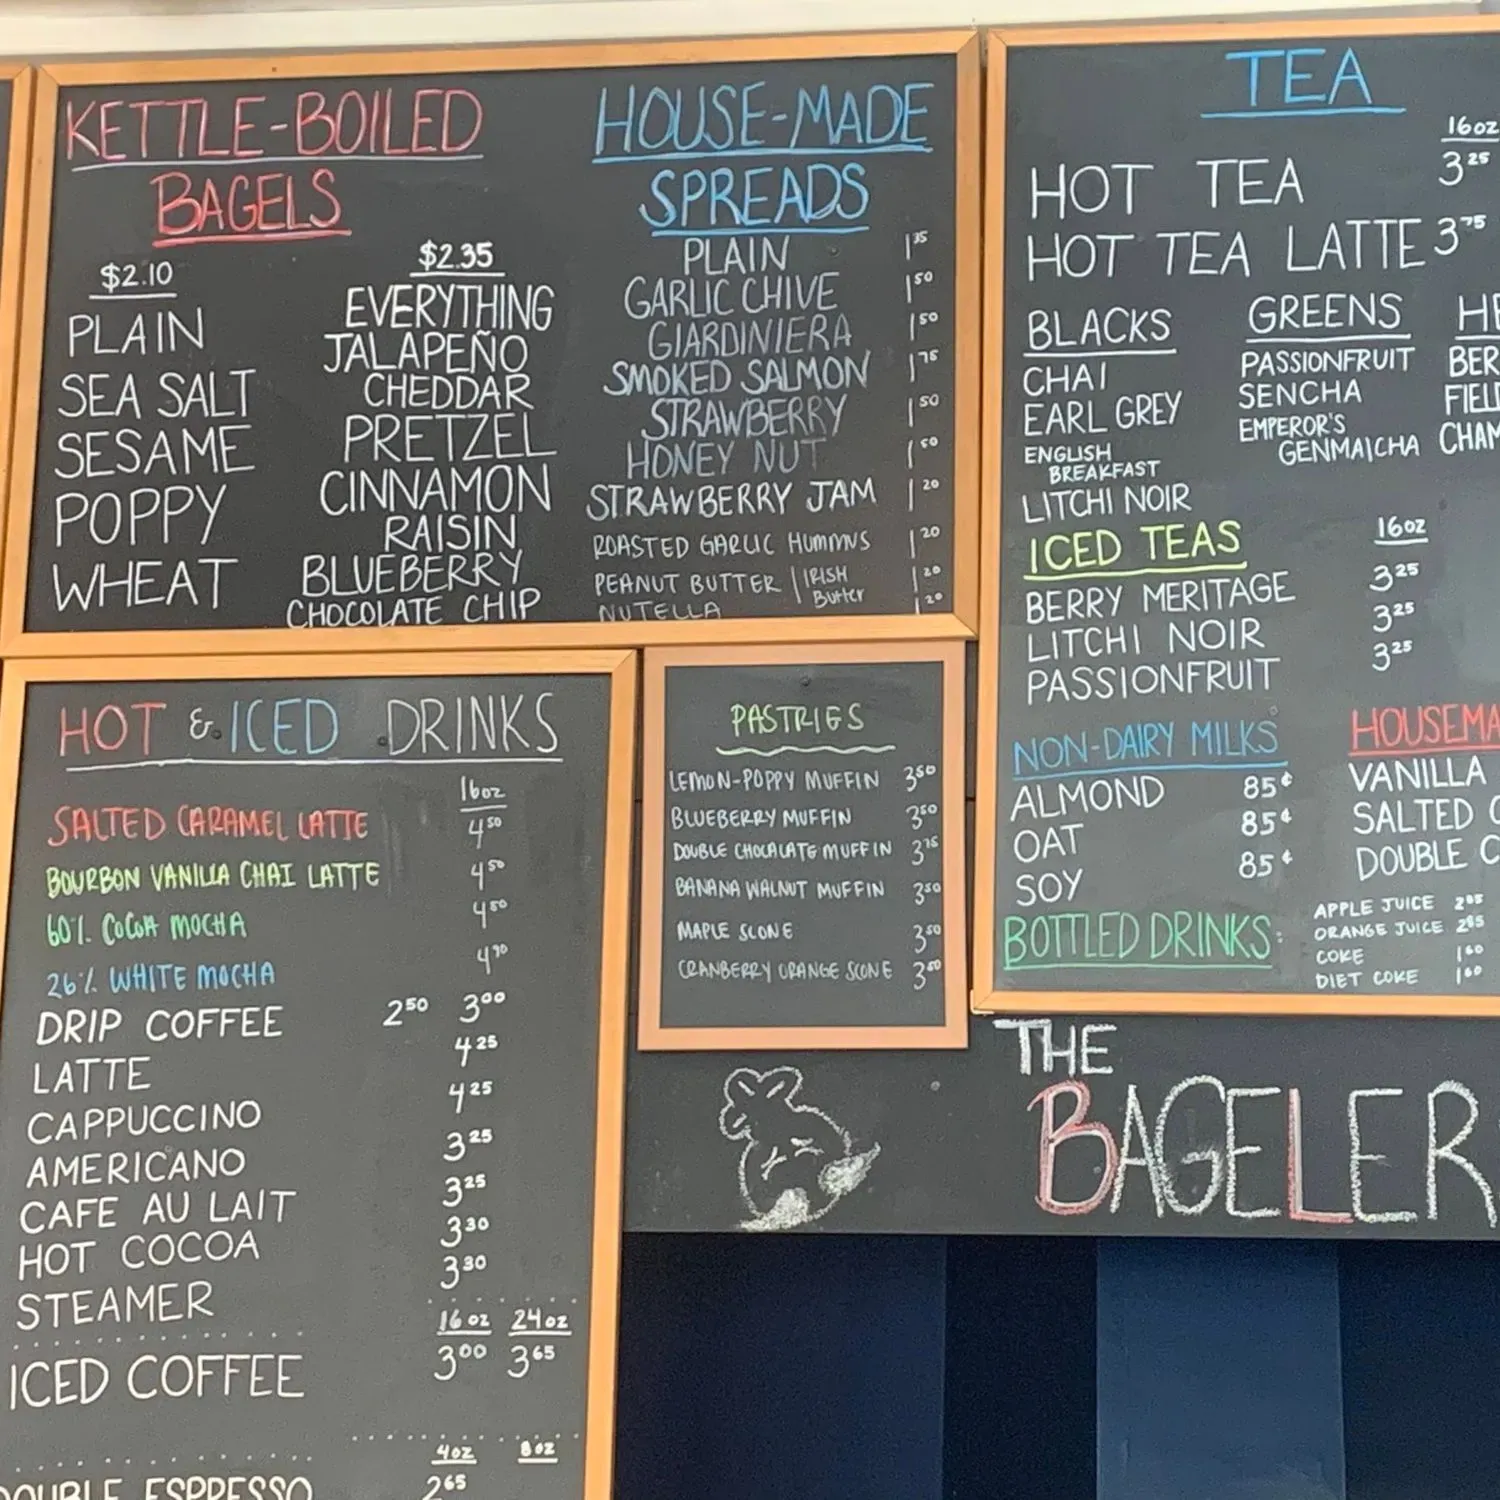 KETTLE-BOILED
BAGELS
$2.10
PLAIN
SEA SALT
SESAME
POPPY
WHEAT
$2.35
EVERYTHING
JALAPEÑO
CHEDDAR
PRETZEL
CINNAMON
RAISIN
BLUEBERRY
CHOCOLATE CHIP
HOUSE-MADE
SPREADS
PLAIN 1.35
GARLIC CHIVE 1.50
GIARDINIERA 1.50
SMOKED SALMON 1.75
STRAWBERRY 1.50
HONEY NUT 1.50
STRAWBERRY JAM 1.20
ROASTED GARLIC HUMMUS 1.20
PEANUT BUTTER | IRISH 1.20
Butter
NUTELLA 1.20
TEA
16oz
HOT TEA 3.25
HOT TEA LATTE 3.75
BLACKS
CHAI
EARL GREY
ENGLISH
BREAKFAST
LITCHI NOIR
GREENS
PASSIONFRUIT
SENCHA
EMPEROR'S
GENMAICHA
HE
BER
FIEL
CHAM
ICED TEAS 16oz
BERRY MERITAGE 3.25
LITCHI NOIR 3.25
PASSIONFRUIT 3.25
NON-DAIRY MILKS
ALMOND 85¢
OAT 85¢
SOY 85¢
HOUSEMA
VANILLA
SALTED C
DOUBLE C
BOTTLED DRINKS:
APPLE JUICE 2.85
ORANGE JUICE 2.85
COKE 1.60
DIET COKE 1.60
HOT & ICED DRINKS
16oz
SALTED CARAMEL LATTE 4.50
BOURBON VANILLA CHAI LATTE 4.50
60% COCOA MOCHA 4.50
26% WHITE MOCHA 4.90
DRIP COFFEE 2.50 3.00
LATTE 4.25
CAPPUCCINO 4.25
AMERICANO 3.25
CAFE AU LAIT 3.25
HOT COCOA 3.30
STEAMER 3.30
16oz 24oz
ICED COFFEE 3.00 3.65
4oz 8oz
DOUBLE ESPRESSO 2.65
PASTRIES
LEMON-POPPY MUFFIN 3.50
BLUEBERRY MUFFIN 3.50
DOUBLE CHOCALATE MUFFIN 3.75
BANANA WALNUT MUFFIN 3.50
MAPLE SCONE 3.50
CRANBERRY ORANGE SCONE 3.50
THE
BAGELER